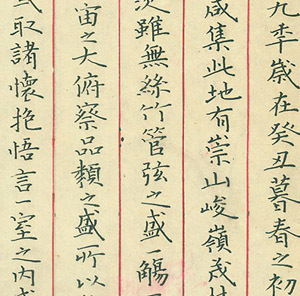 九年歲在癸丑暮春之初
咸集此地有崇山峻嶺茂
雖無絲竹管弦之盛一觴
宙之大俯察品類之盛所以
取諸懷抱悟言一室之內